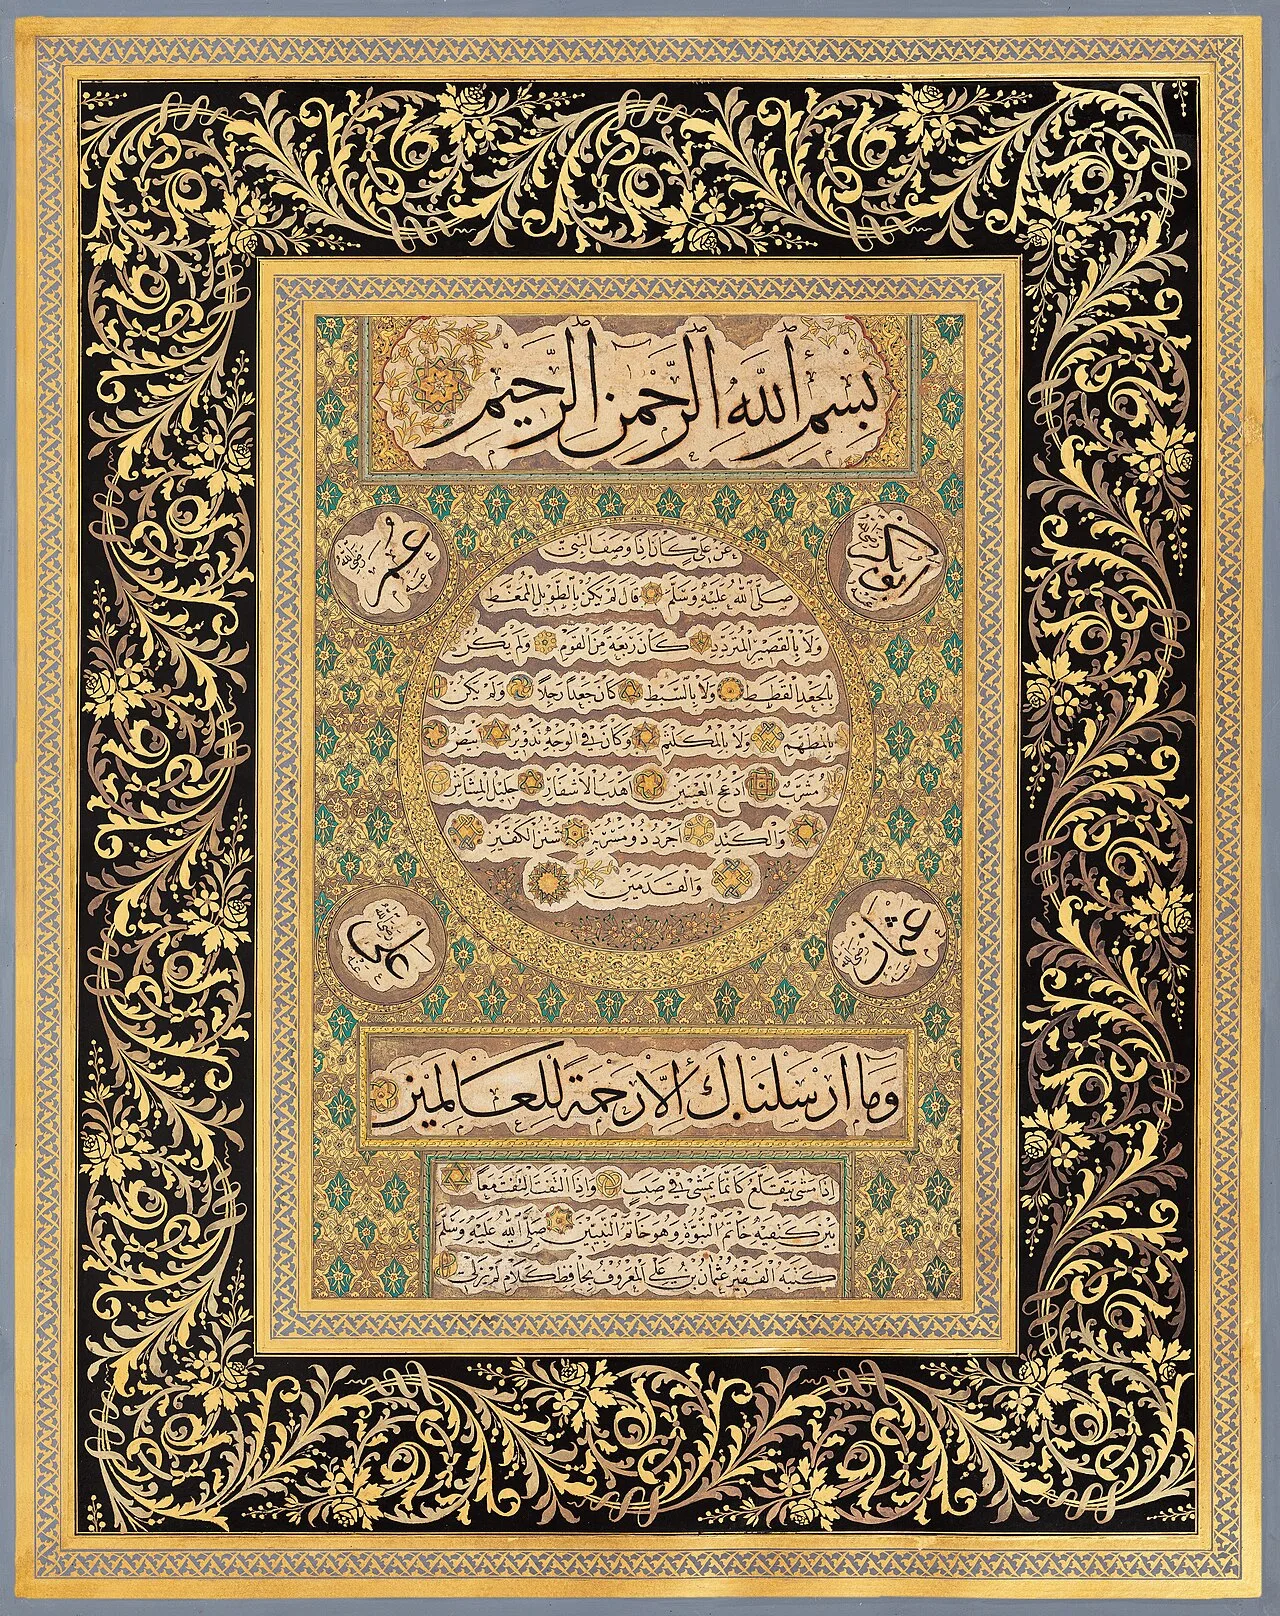 بسم الله الرحمن الرحيم
ابوبكر رضي الله عنه
عمر رضي الله عنه
عن علي كان اذا وصف النبي
صلى الله عليه وسلم قال لم يكن بالطويل الممغط
ولا بالقصير المتردد كان ربعة من القوم ولم يكن
بالجعد القطط ولا بالسبط كان جعدا رجلا ولم يكن
بالمطهم ولا بالمكلثم وكان في الوجه تدوير ابيض
مشرب ادعج العينين اهدب الاشفار جليل المشاش
والكتد اجرد ذو مسربة شثن الكفين
والقدمين
عثمان رضي الله عنه
علي رضي الله عنه
وما ارسلناك الا رحمة للعالمين
اذا مشى يتقلع كانما يمشي في صبب واذا التفت التفت معا
بين كتفيه خاتم النبوة وهو خاتم النبيين صلى الله عليه وسلم
كتبه الفقير عثمان بن علي المعروف بحافظ كلام لم يزلي